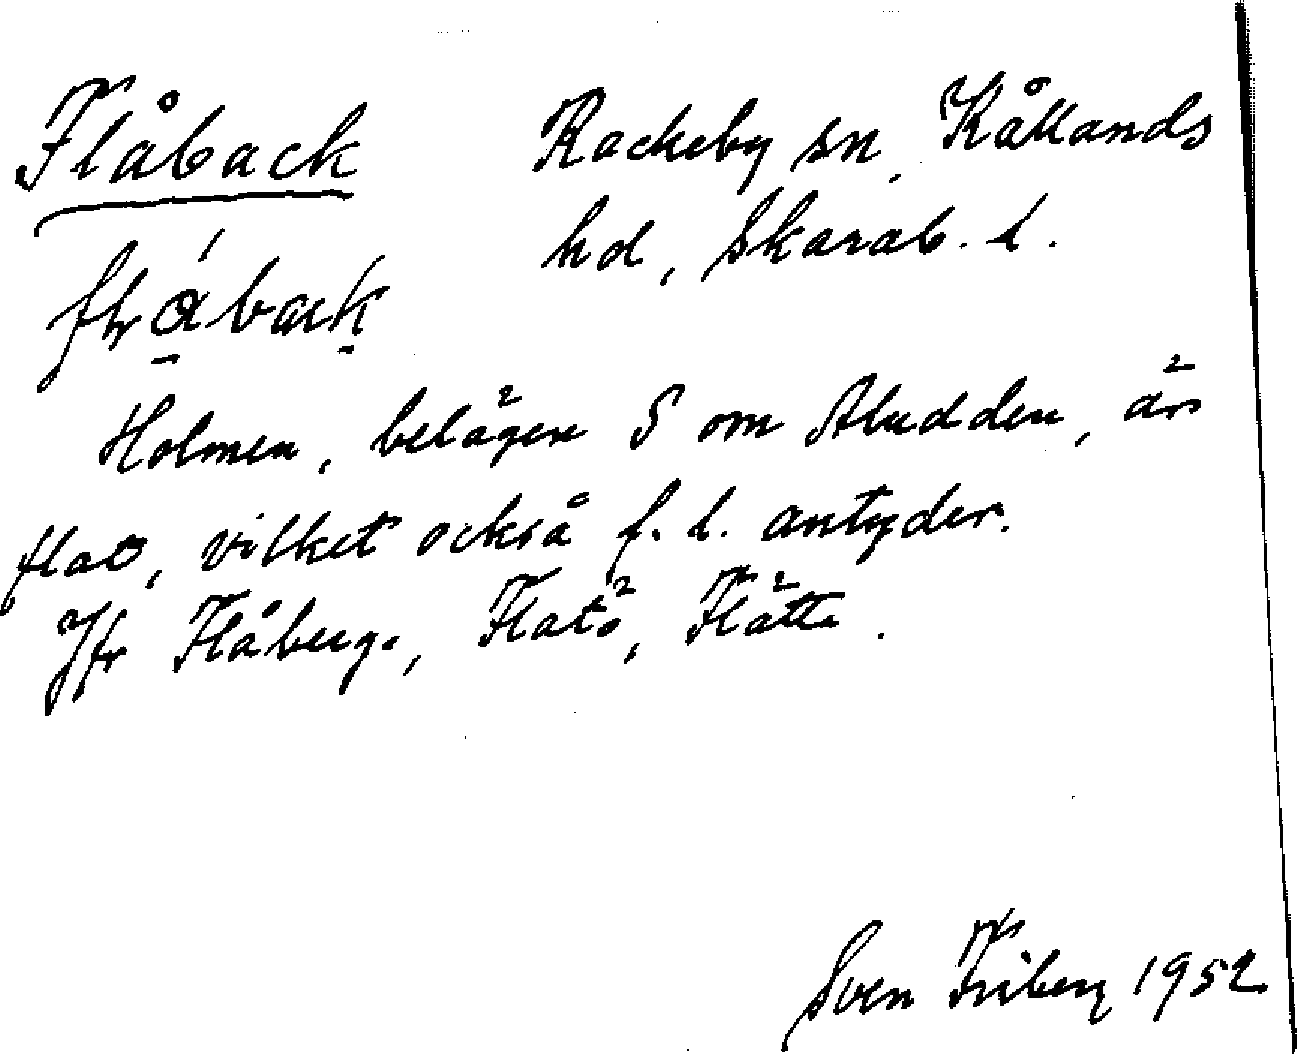 Flåback Rackeby sn, Kållands
hd, Skarab. l.
Holmen, belägen S om Aludden, är
flat, vilket också f. l. antyder.
Jfr Flåberge, Flatö, Flätte.
Sven Friberg 1952